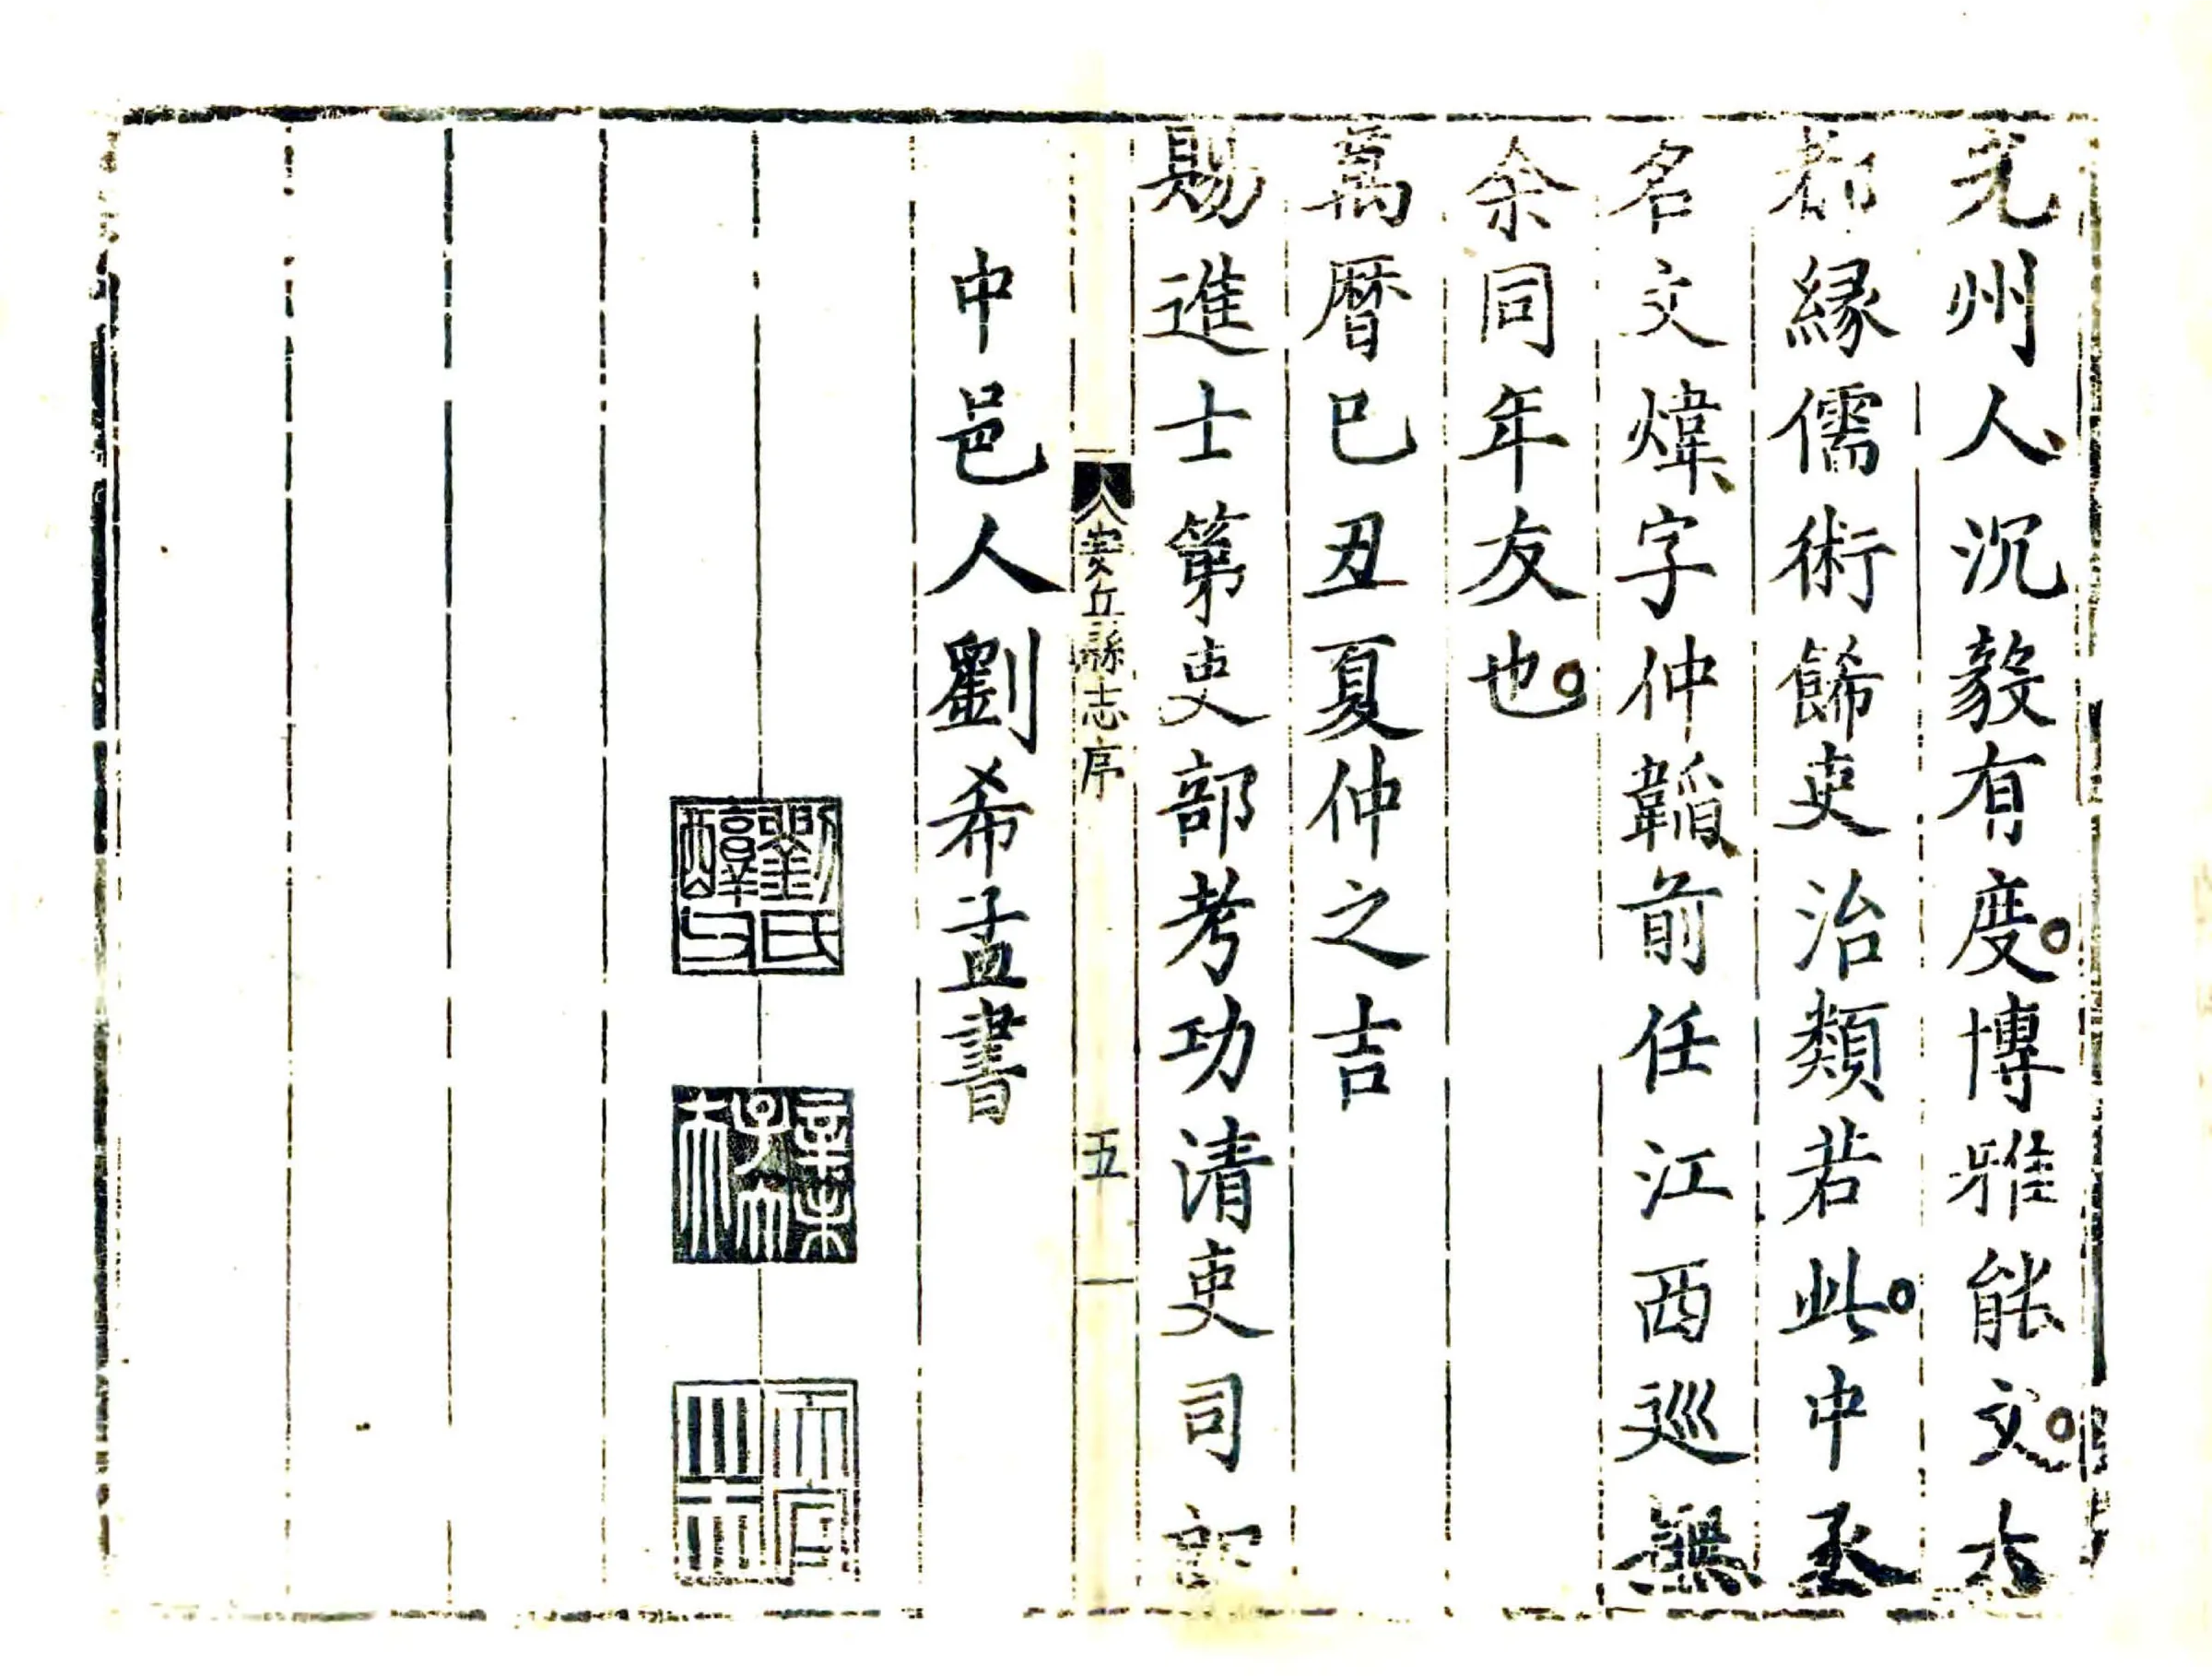 光州人沉毅有度。博雅能文。大
都緣儒術餙吏治類若此。中丞
名文煒字仲韜前任江西巡撫
余同年友也。
萬暦己丑夏仲之吉
賜進士第吏部考功清吏司郎
安丘縣志序 五
中邑人劉希孟書
劉氏醇父